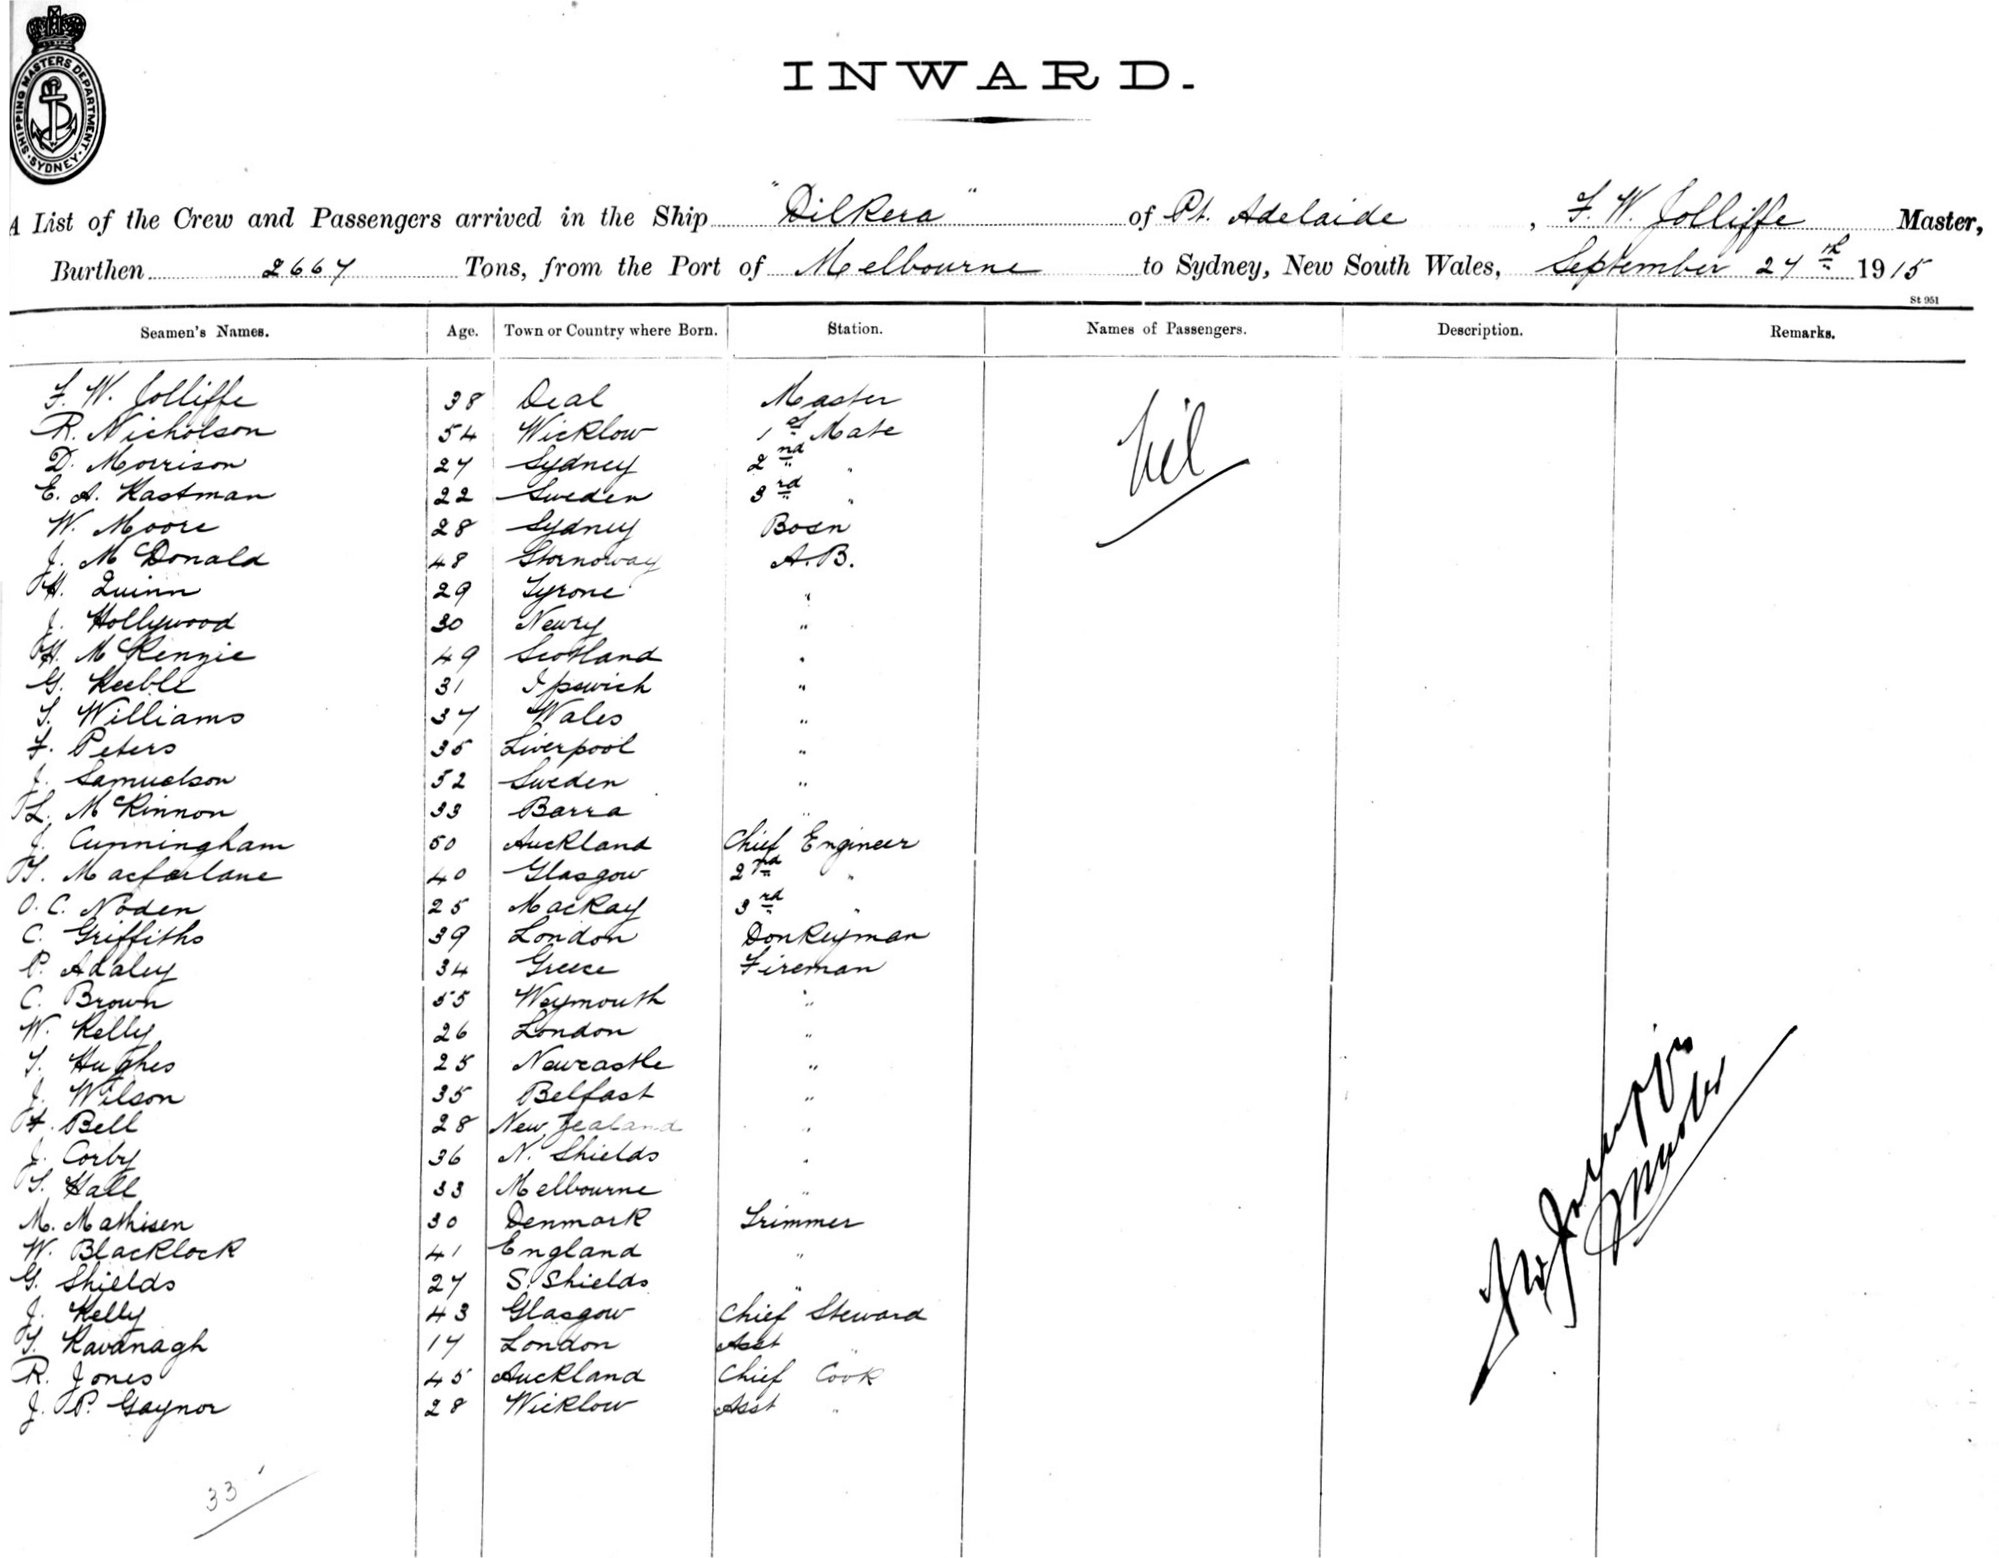 SHIPPING MASTERS DEPARTMENT. SYDNEY
INWARD.
A List of the Crew and Passengers arrived in the Ship "Dilkera" of Pt. Adelaide, F. W. Jolliffe Master,
Burthen 2667 Tons, from the Port of Melbourne to Sydney, New South Wales, September 27th 1915
St 951
Seamen's Names. Age. Town or Country where Born. Station. Names of Passengers. Description. Remarks.
F. W. Jolliffe 38 Deal Master
R. Nicholson 54 Wicklow 1st Mate
Nil
D. Morrison 27 Sydney 2nd "
E. A. Kastman 22 Sweden 3rd "
W. Moore 28 Sydney Bosn
J. McDonald 48 Stornoway A.B.
H. Quinn 29 Tyrone "
J. Hollywood 30 Newry "
H. McKenzie 49 Scotland "
G. Keeble 31 Ipswich "
T. Williams 37 Wales "
F. Peters 35 Liverpool "
J. Samuelson 52 Sweden "
L. McKinnon 33 Barra "
J. Cunningham 50 Auckland Chief Engineer
T. Macfarlane 40 Glasgow 2nd "
O. C. Noden 25 Mackay 3rd "
C. Griffiths 39 London Donkeyman
P. Adaley 34 Greece Fireman
C. Brown 55 Weymouth "
W. Kelly 26 London "
T. Hughes 25 Newcastle "
J. Wilson 35 Belfast "
F. Bell 28 New Zealand "
J. Corby 36 N. Shields "
T. Hall 33 Melbourne "
M. Mathisen 30 Denmark Trimmer
W. Blacklock 41 England "
G. Shields 27 S. Shields "
J. Kelly 43 Glasgow Chief Steward
T. Kavanagh 17 London Asst "
R. Jones 45 Auckland Chief Cook
J. P. Gaynor 28 Wicklow Asst "
33
F W Jolliffe
Master